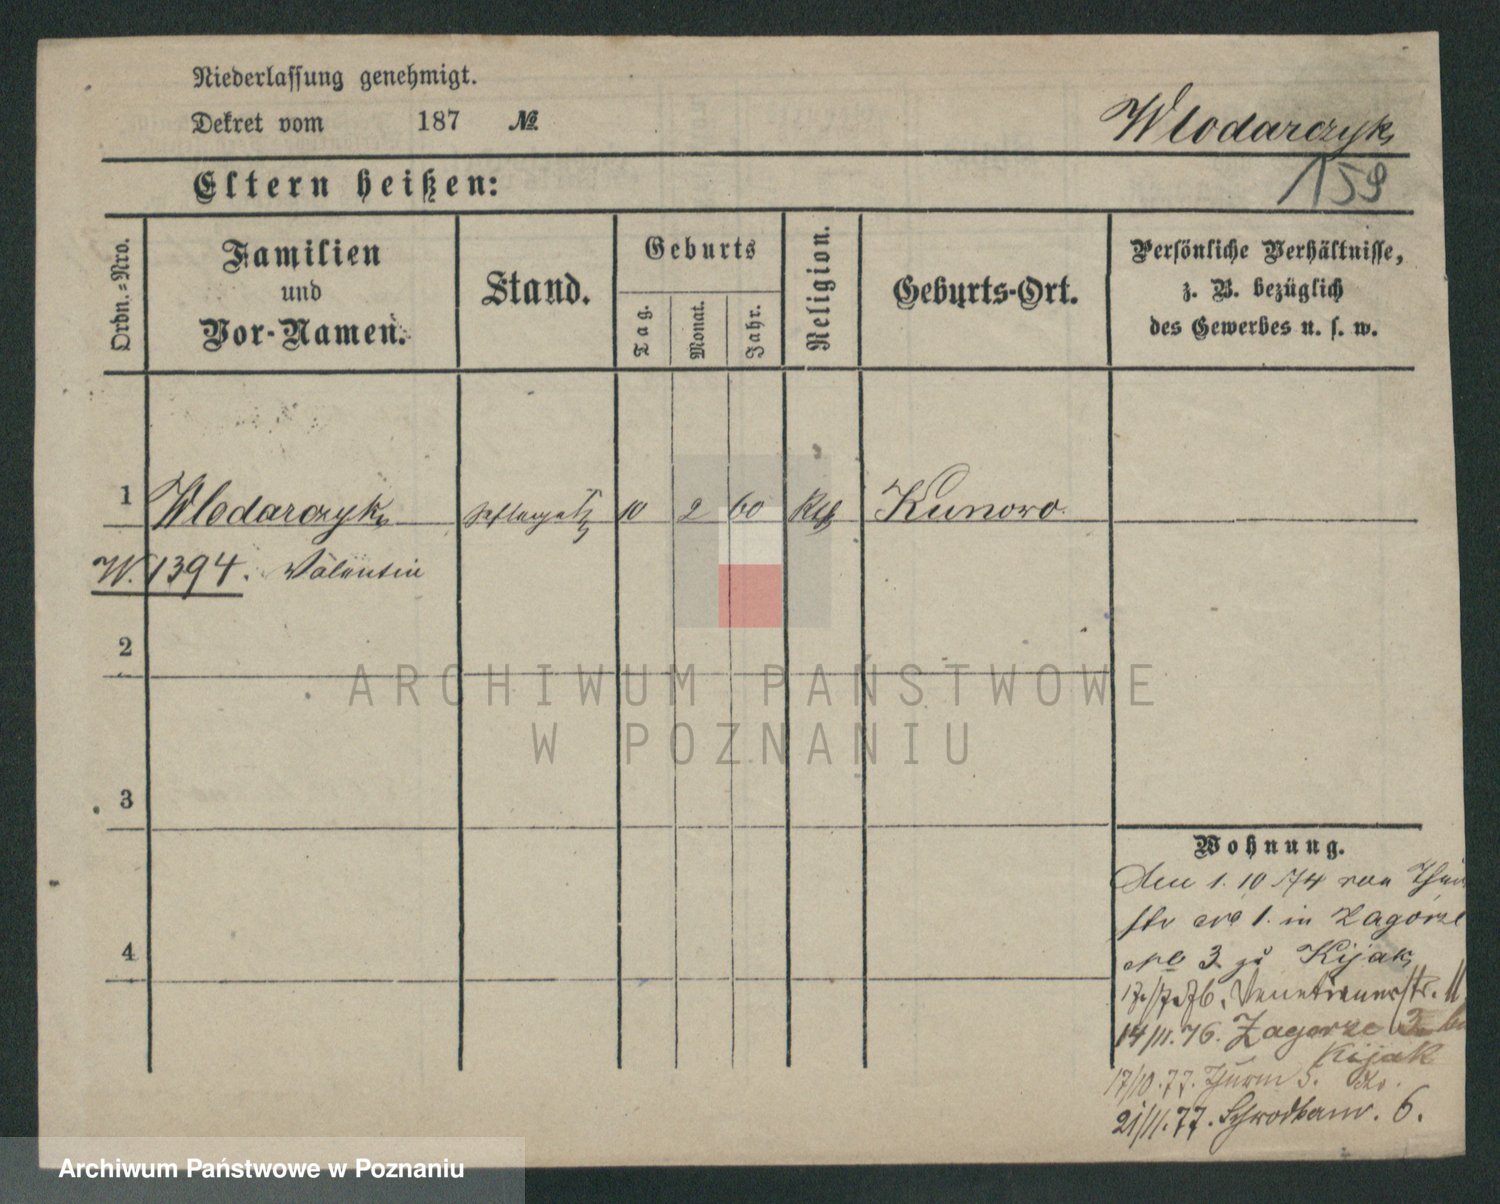 Niederlassung genehmigt.
Dekret vom 187 №
Wlodarczyk
159
Eltern heißen:
Ordn.-Nro.
Familien
und
Vor-Namen.
Stand.
Geburts
Tag.
Monat.
Jahr.
Religion.
Geburts-Ort.
Persönliche Verhältnisse,
z. B. bezüglich
des Gewerbes u. s. w.
1 Wlodarczyk 10 2 60 Kth Kunowo
W. 1394. Valentin
2
3
4
Wohnung.
Den 1. 10 74 von
str No 1. in Zagórze
No 3 zu Kijak
17/7. 76. Venetianerstr. 11
14/11. 76. Zagorze
Kijak
17/10. 77. Thurm 5.
21/11. 77. Schrodkamr. 6.
ARCHIWUM PAŃSTWOWE
W POZNANIU
Archiwum Państwowe w Poznaniu